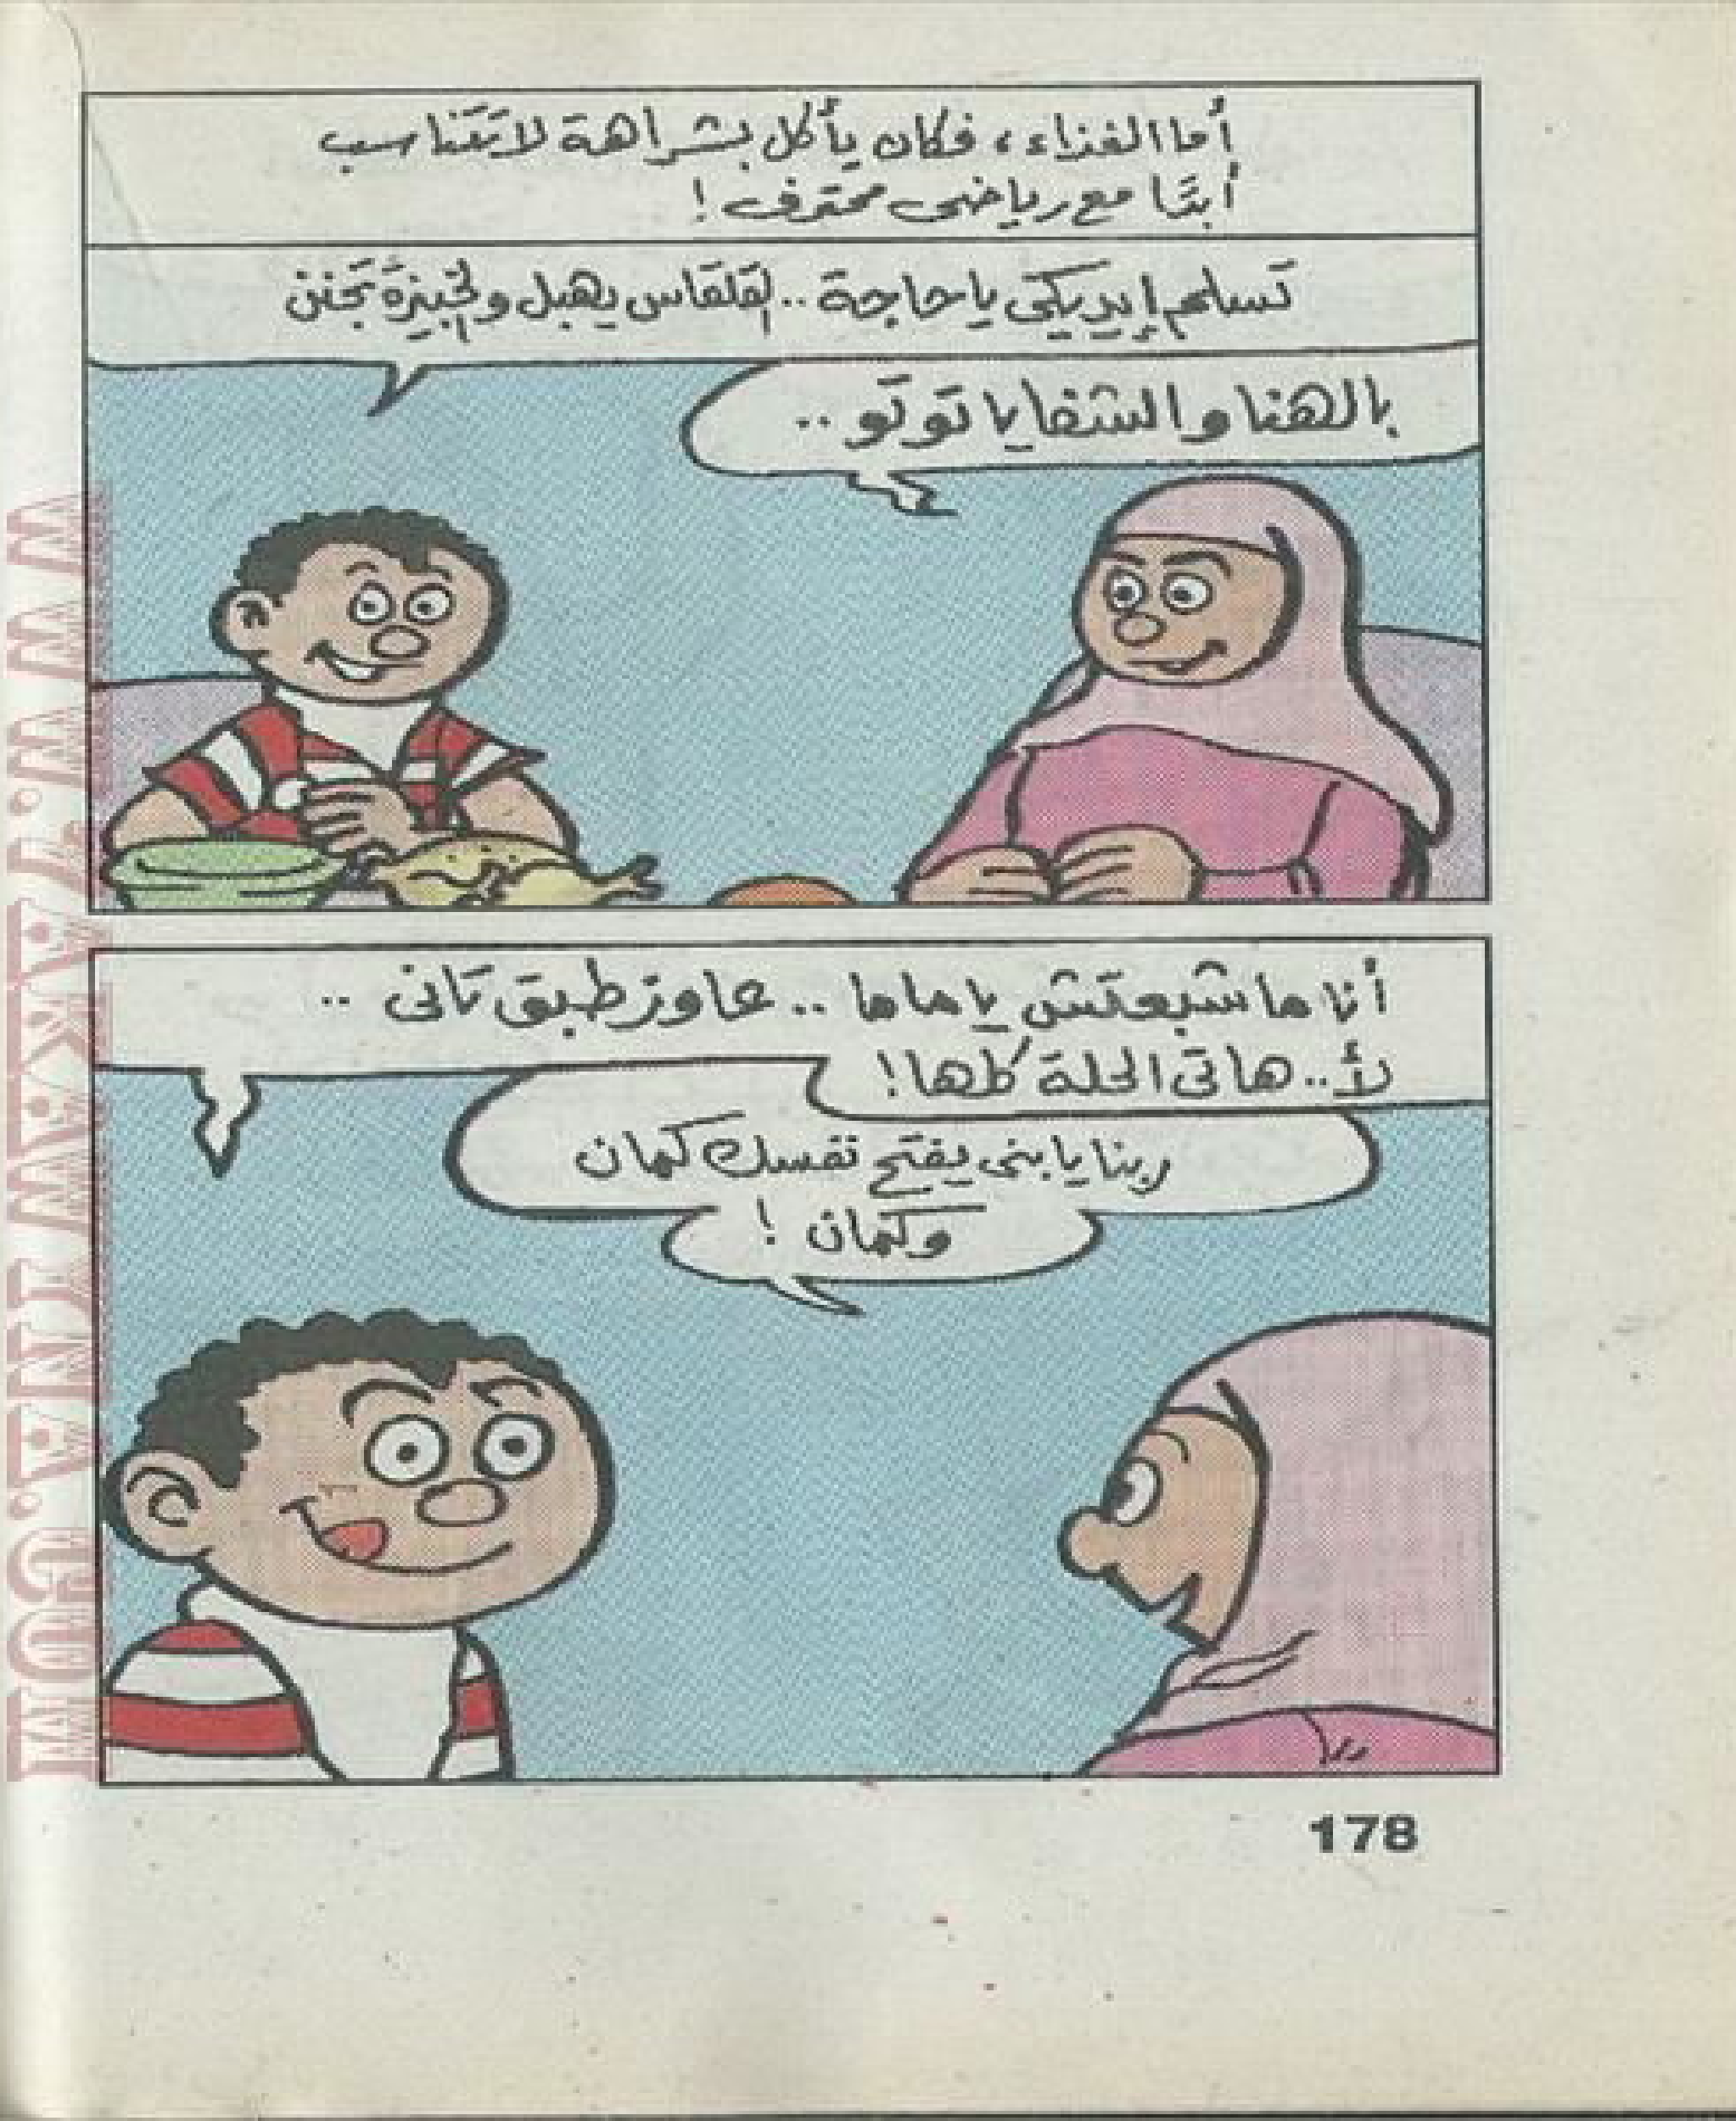 أما الغذاء، فكان يأكل بشراهة لا تتناسب
أبدًا مع رياضى محترف!
تسلم إيديكى يا حاجة .. القلقاس يهبل والخبيزة تجنن
بالهنا والشفا يا توتو ..
أنا ما شبعتش يا ماما .. عاوز طبق تانى ..
لأ .. هاتى الحلة كلها!
ربنا يا بنى يفتح نفسك كمان
وكمان!
178